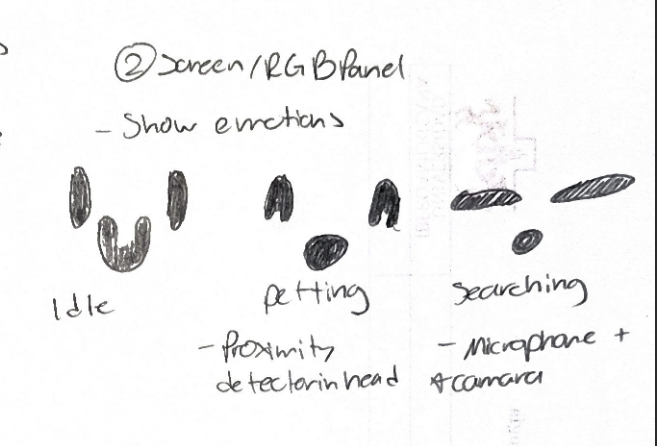 ② Screen/RGB Panel
- Show emotions
Idle
petting
Searching
- Proximity
detector in head
- Microphone +
camara